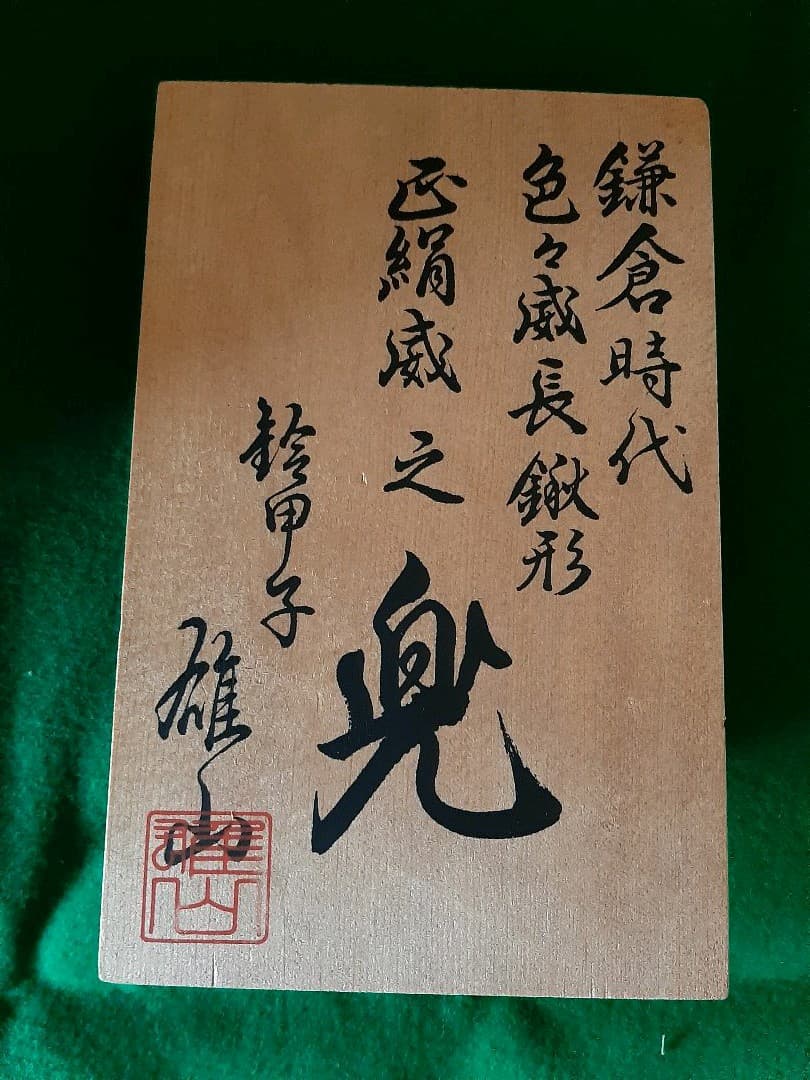 鎌倉時代
色々威長鍬形
正絹威之
兜
鈴甲子
雄山
雄山